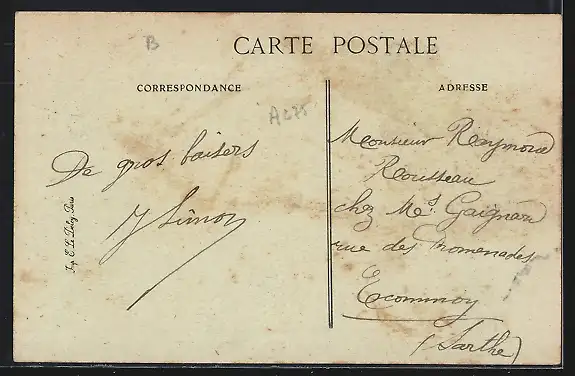 B
CARTE POSTALE
CORRESPONDANCE
ADRESSE
De gros baisers
Y Simon
Imp. E. Le Deley, Paris
Monsieur Raymond
Rousseau
chez Mr. Gaignard
rue des Promenades
Ecommoy
(Sarthe)